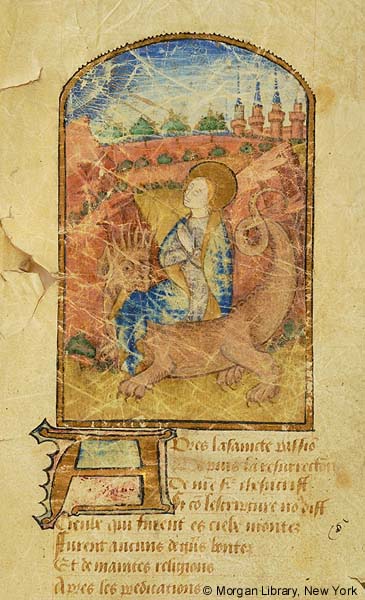 Pres la saincte passio
Depuis la resurrection
De nre sr
Et co lescripture no dist
Cieulz qui furent es cielz montez
Furent aucuns de grās bontez
Et de maintes religions
Apres les predications
© Morgan Library, New York